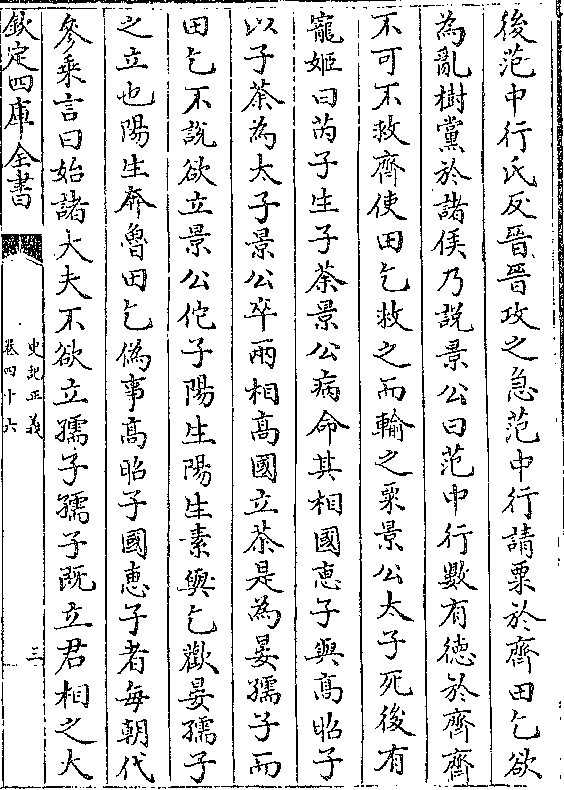 後范中行氏反晉晉攻之急范中行請粟於齊田乞欲
為亂樹黨於諸侯乃說景公曰范中行數有德於齊齊
不可不救齊使田乞救之而輸之粟景公太子死後有
寵姬曰芮子生子荼景公病命其相國惠子與高昭子
以子荼為太子景公卒兩相高國立荼是為晏孺子而
田乞不說欲立景公佗子陽生陽生素與乞歡晏孺子
之立也陽生奔魯田乞偽事高昭子國惠子者每朝代
參乘言曰始諸大夫不欲立孺子孺子既立君相之大
欽定四庫全書
史記正義
卷四十六
三